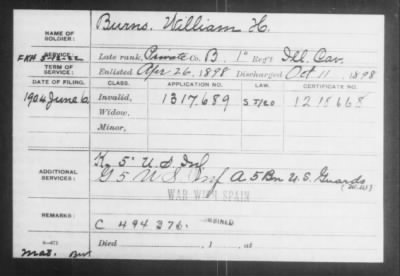 NAME OF SOLDIER: Burns, William H.
SERVICE
Late rank, Private Co. B. 1" Reg't Ill. Cav.
TERM OF SERVICE: Enlisted Apr 26, 1898 Discharged Oct 11, 1898
DATE OF FILING. CLASS. APPLICATION NO. LAW. CERTIFICATE NO.
1904 June Invalid, 1317.689
Widow,
Minor,
K, 5" U.S. Inf
ADDITIONAL SERVICES: G 5 U S Inf A 5 Bn U.S. Guards
WAR WITH SPAIN
REMARKS: C 494 376.
Died , 1 , at